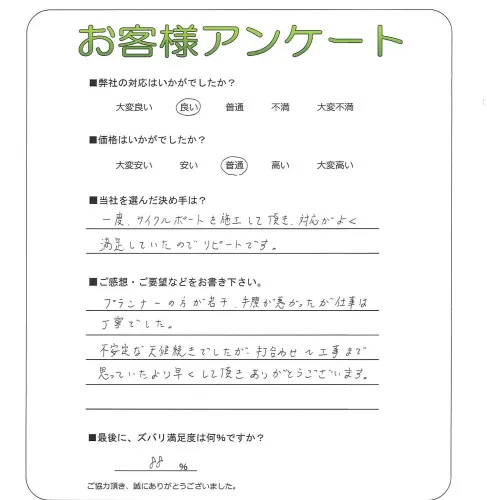 お客様アンケート
■弊社の対応はいかがでしたか?
大変良い 良い 普通 不満 大変不満
■価格はいかがでしたか?
大変安い 安い 普通 高い 大変高い
■当社を選んだ決め手は?
一度、サイクルポートを施工して頂き、対応がよく
満足していたのでリピートです。
■ご感想・ご要望などをお書き下さい。
プランナーの方が若干、手際が悪かったが仕事は
丁寧でした。
不安定な天候続きでしたが、打合わせ〜工事まで
思っていたより早くして頂きありがとうございます。
■最後に、ズバリ満足度は何%ですか?
88 %
ご協力頂き、誠にありがとうございました。